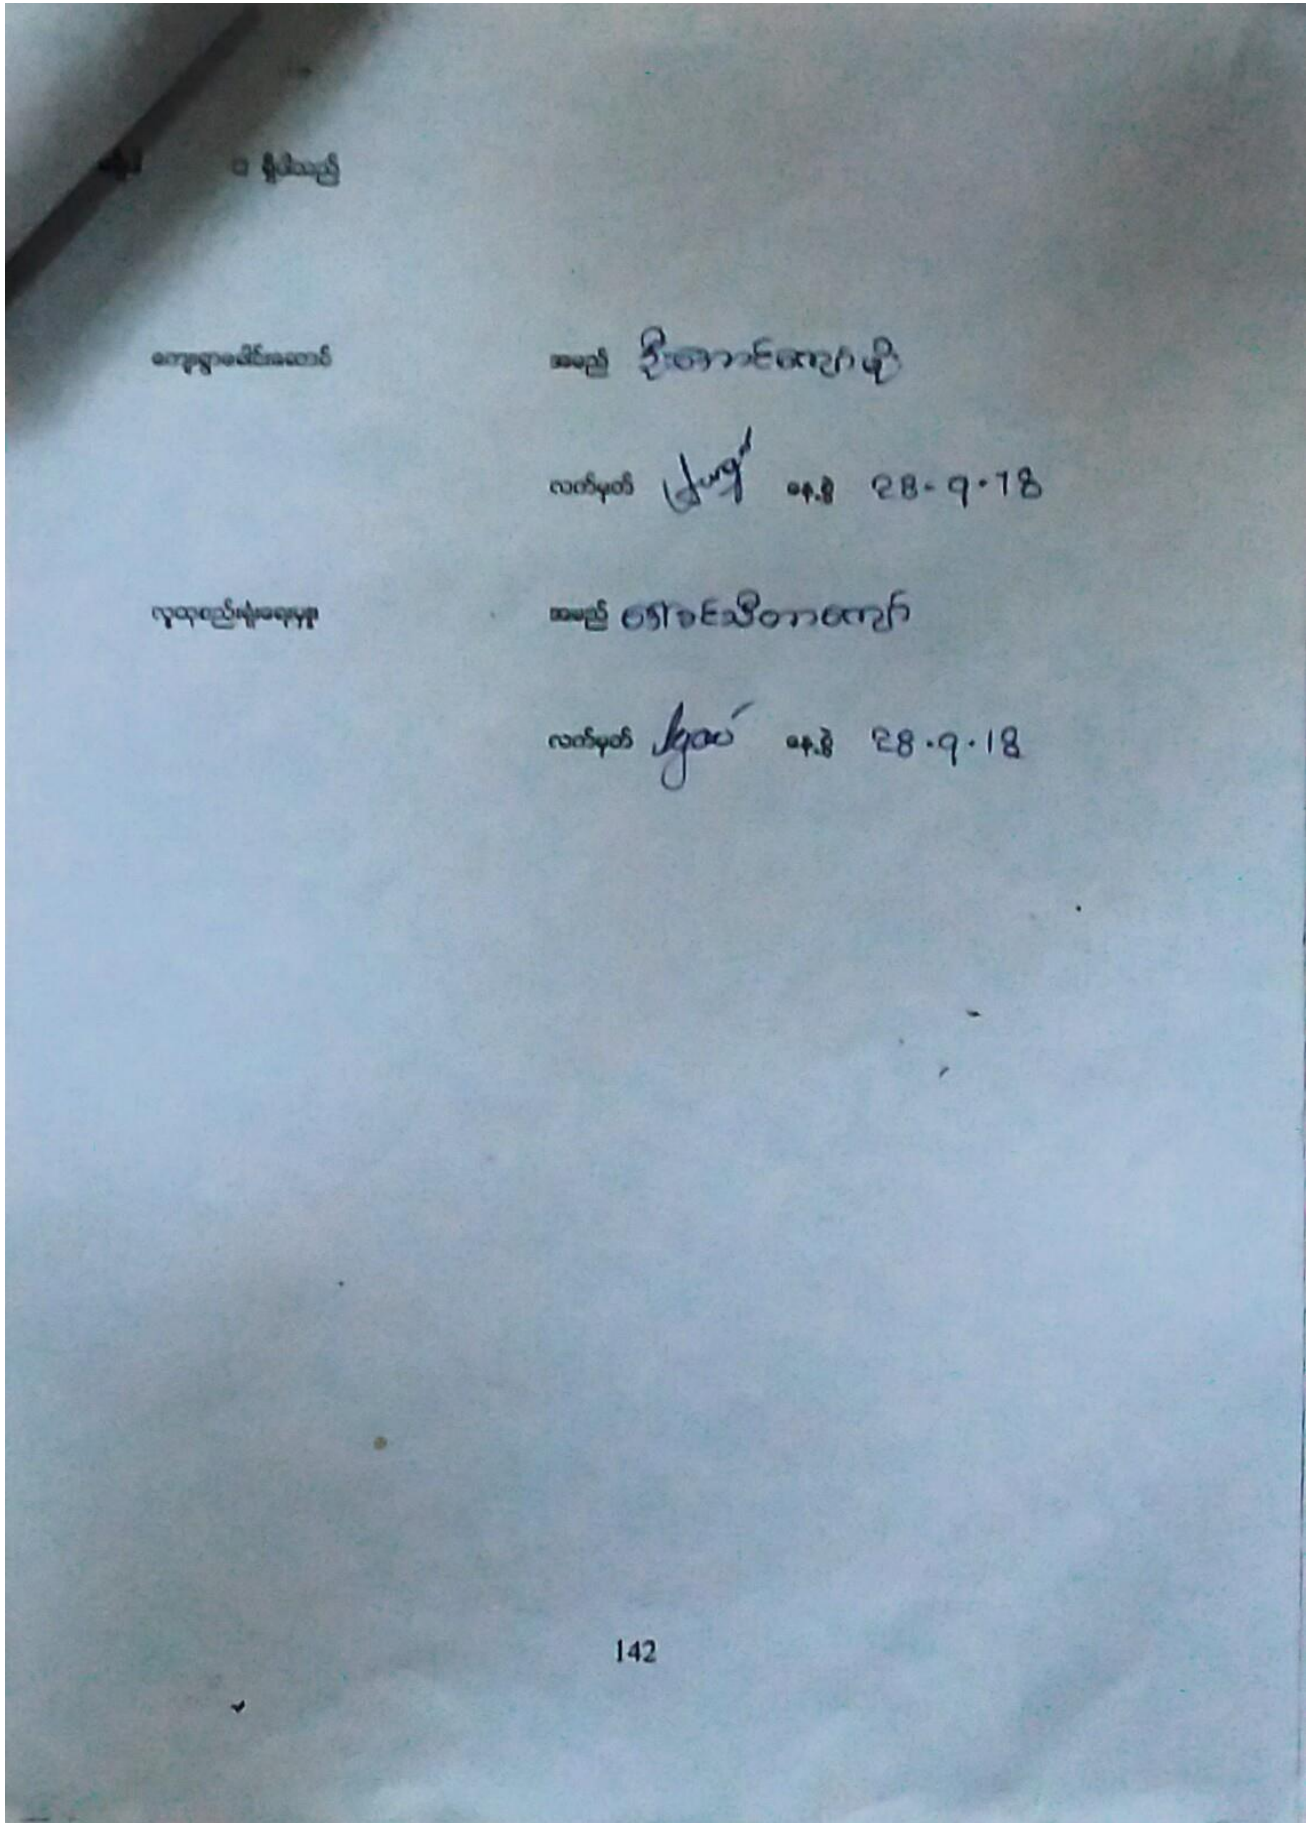 ရှိပါသည်
ကျေးရွာခေါင်းဆောင် အမည် ဦးအောင်ကျော်ဖြိုး
လက်မှတ် နေ့စွဲ 28-9-18
လူထုစည်းရုံးရေးမှူး အမည် ဒေါ်ခင်သီတာကျော်
လက်မှတ် နေ့စွဲ 28.9.18
142